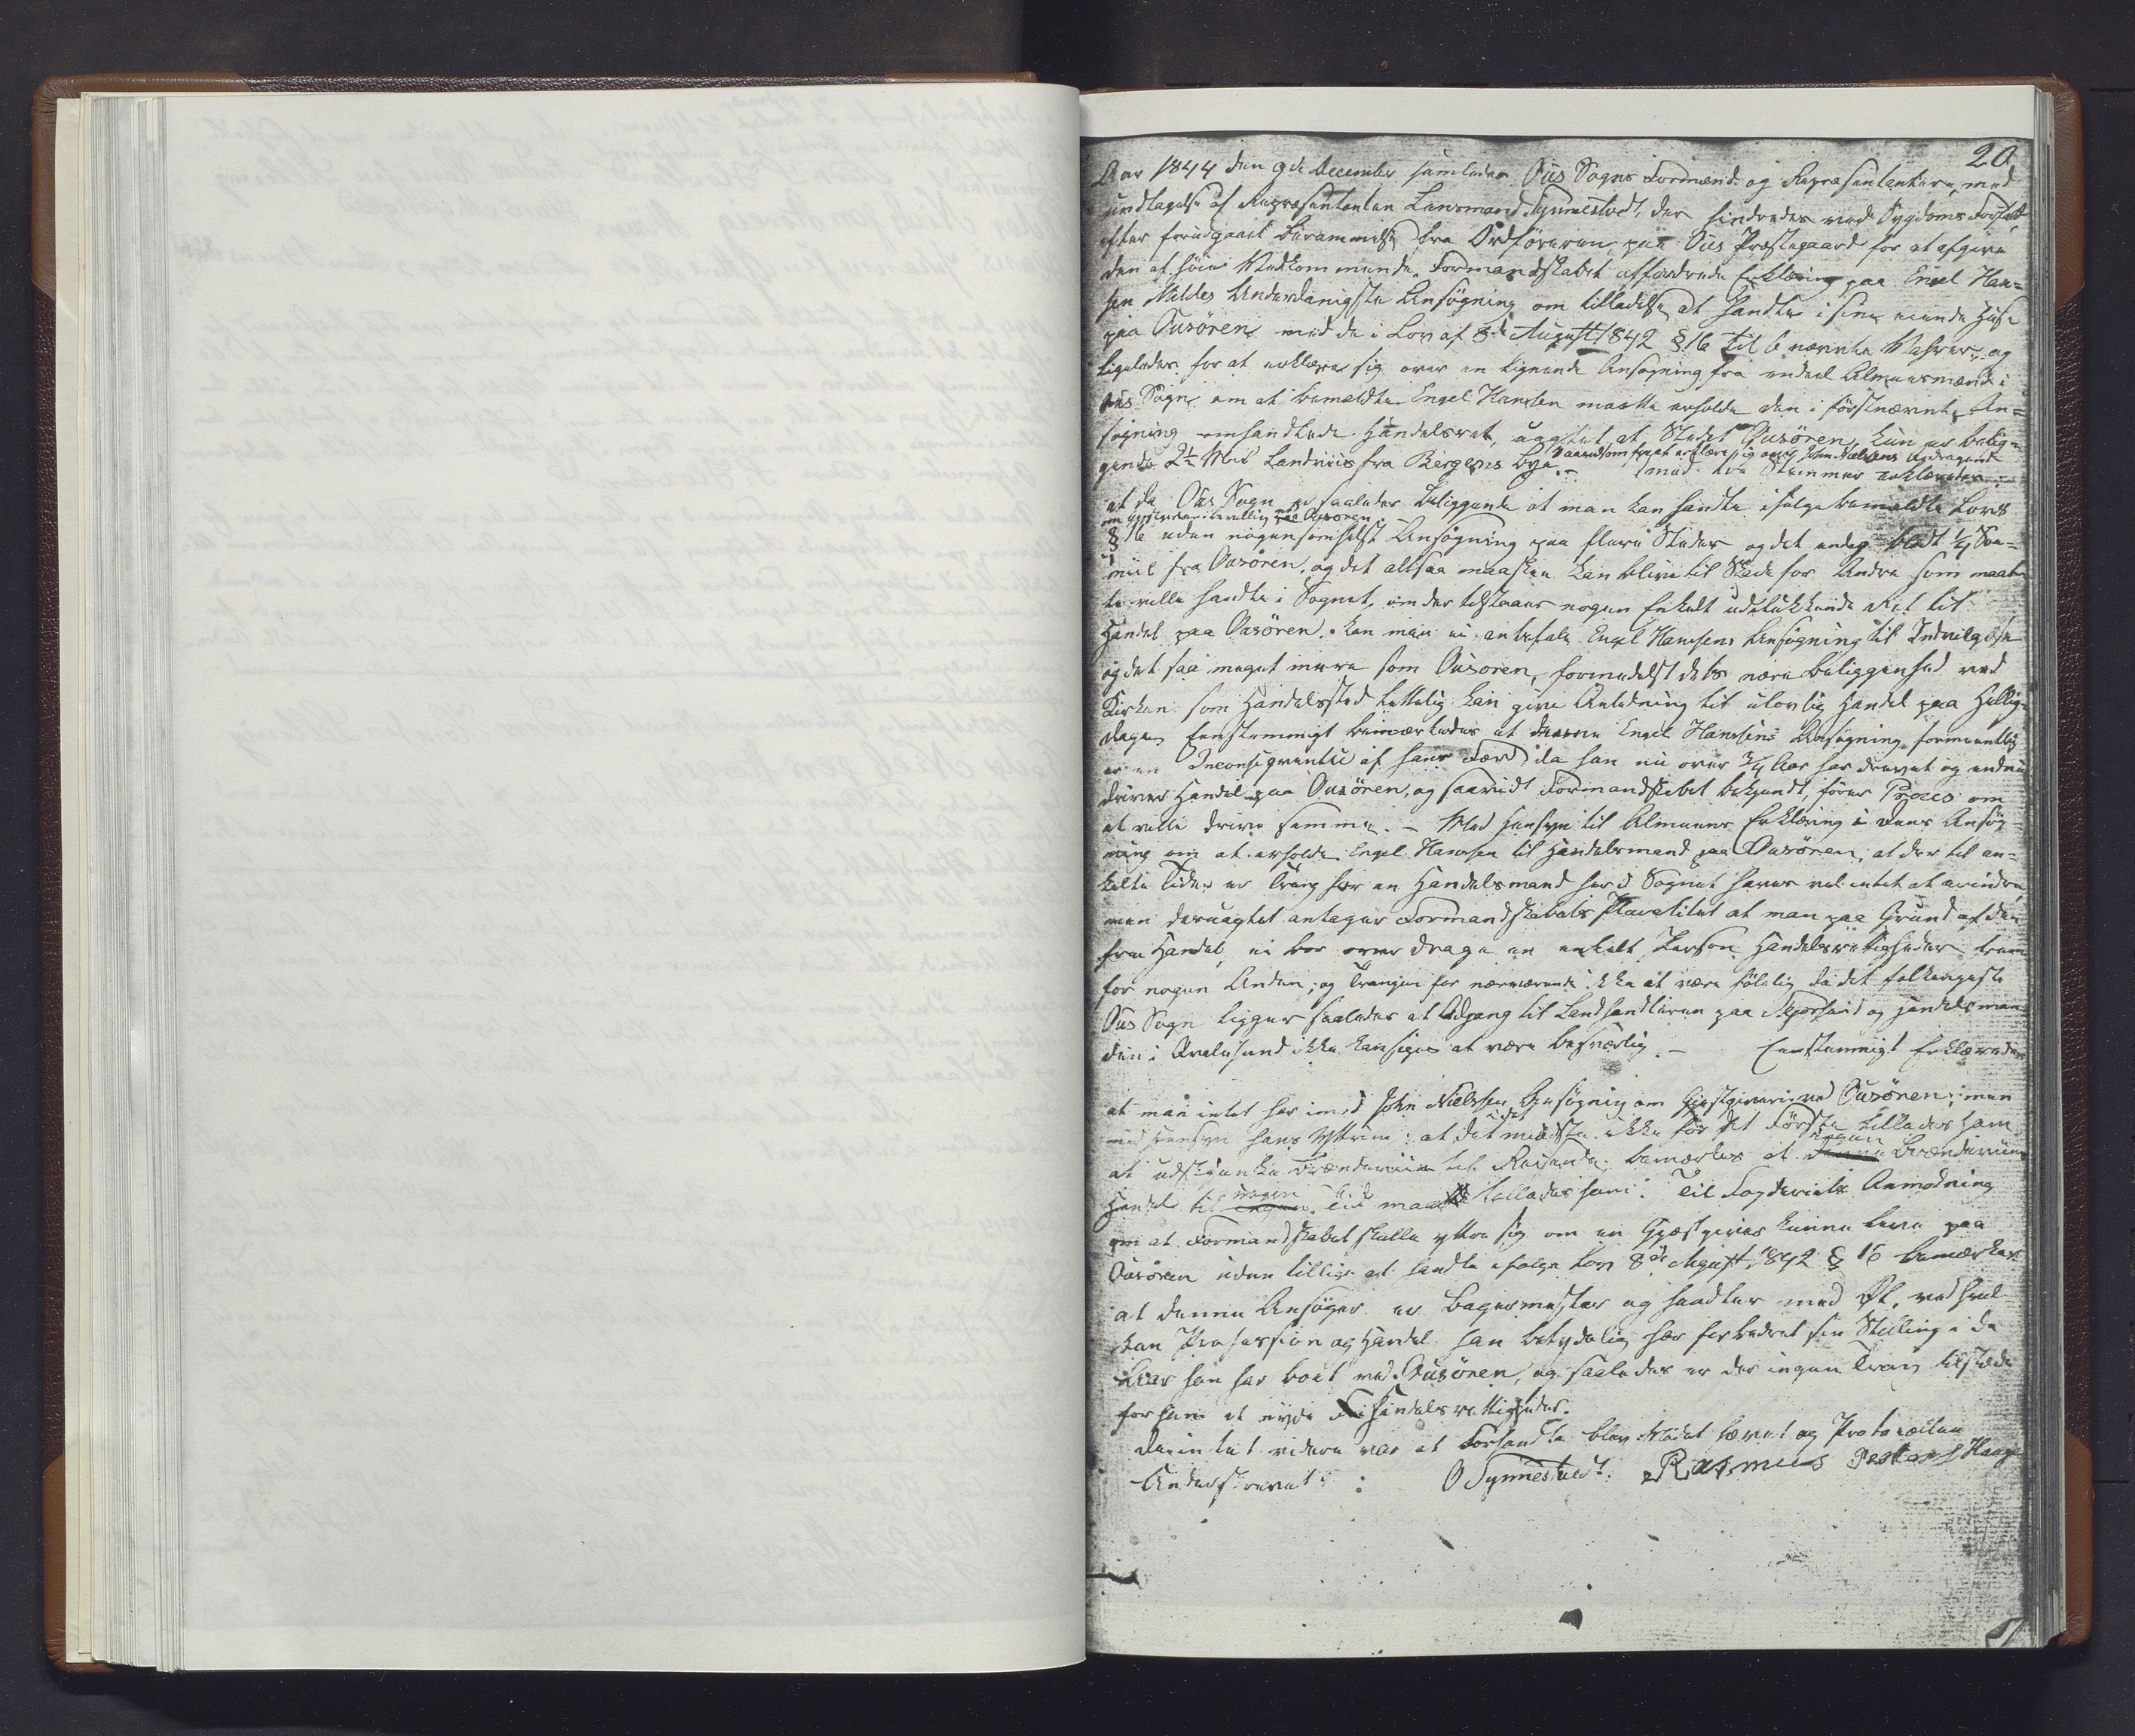 20
Aar 1844 den 9de December samledes Ous Sogns Formænd og Repræsentantere, med
undtagelse af Repræsentanten Lensmand Synnestvedt, der hindredes ved Sygdoms Forfald
efter forudgaaet Berammelse fra Ordføreren paa Ous Præstegaard for at afgive
den af høie Vedkommende Formandskabet affordrede Erklæring paa Engel Han=
sen Mildes Underdanigste Ansøgning om tilladelse at handle i sine eiende Huse
paa Ousøren med de i Lov af 8de August 1842 § 16 til 6 nævnte Vahrer, og
ligeledes for at erklære sig over en lignende Ansøgning fra endeel Almuesmænd i
Ous Sogn om at bemeldte Engel Hansen maatte erholde den i førstnævnte An=
søgning omhandlede Handelsret, uagtet at Stedet Ousøren kun er belig=
gende 2½ Miil Landviis fra Bergens Bye. –
saavelsom for at erklære sig over John Nielsens Andragende
om Gjæstgiveribevilling ved Ousøren
med tre Stemmer erklæredes:
at da Ous Sogn er saaledes beliggende at man kan handle ifølge bemeldte Lovs
§ 16 uden nogensomhelst Ansøgning paa flere Steder og det endog blot ¼ Søe=
miil fra Ousøren, og det altsaa maaskee kan blive til Skade for Andre som maat=
te ville handle i Sognet, om der tilstaaes nogen Enkelt udelukkende Ret til
Handel paa Ousøren, kan man ei anbefale Engel Hansens Ansøgning til Indvilgelse
og det saa meget mere som Ousøren, formedelst dets nære beliggenhed ved
Kirken som Handelssted lettelig kan give Anledning til ulovlig Handel paa Hellig=
dagen. Eenstemmigt bemærkedes at denne Engel Hansens Ansøgning formeentlig
er en Inconsiqventse af hans Færd da han nu over ¾ Aar har drevet og endnu
driver Handel paa Ousøren, og saavidt Formandskabet bekjendt, fører Proces om
at ville drive samme. – Med Hensyn til Almuens Erklæring i dens Ansøg=
ning om at erholde Engel Hansen til Handelsmand paa Ousøren, at der til en=
kelte Tider er Trang for en Handelsmand her i Sognet haves vel intet at erindre,
men desuagtet antager Formandskabets Pluralitet at man paa Grund af den
frie Handel, ei bør overdrage en enkelt Person Handelsrettigheder frem
for nogen Anden; og Trangen for nærværende ikke at være følelig da det folkerigeste
Ous Sogn ligger saaledes at Adgang til Landhandleren paa Skjørsand og Handelsman
den i Qvalvsund ikke kan siges at være besværlig. – Eenstemmigt Erklæredes
at man intet har imod John Nielsens Ansøgning om Gjæstgiveri ved Ousøren; men
med Hensyn hans Yttring: at det i det mindste ikke for det Første tillades ham
at udskjænke Brændeviin til Reisende, bemærkes at ingen Brændeviins
Handel til nogen Tid maa tillades ham. Til Fogderiets Anmodning
om at Formandskabet skulle yttre sig om en Gjæstgiver kunne leve paa
Ousøren uden tillige at handle ifølge Lov 8de August 1842 § 16 bemærkes
at denne Ansøger er Bagermester og handler med Øl, ved hvil=
ken Profession og Handel han betydelig har forbedret sin Stilling i de
Aar han har boet ved Ousøren, og saaledes er der ingen Trang tilstede
for ham at nyde Handelsrettigheder.
Da intet videre var at Forhandle blev Mødet hævet og Protocollen
Underskrevet: O Synnestvedt. Rasmus Pedersen Haage